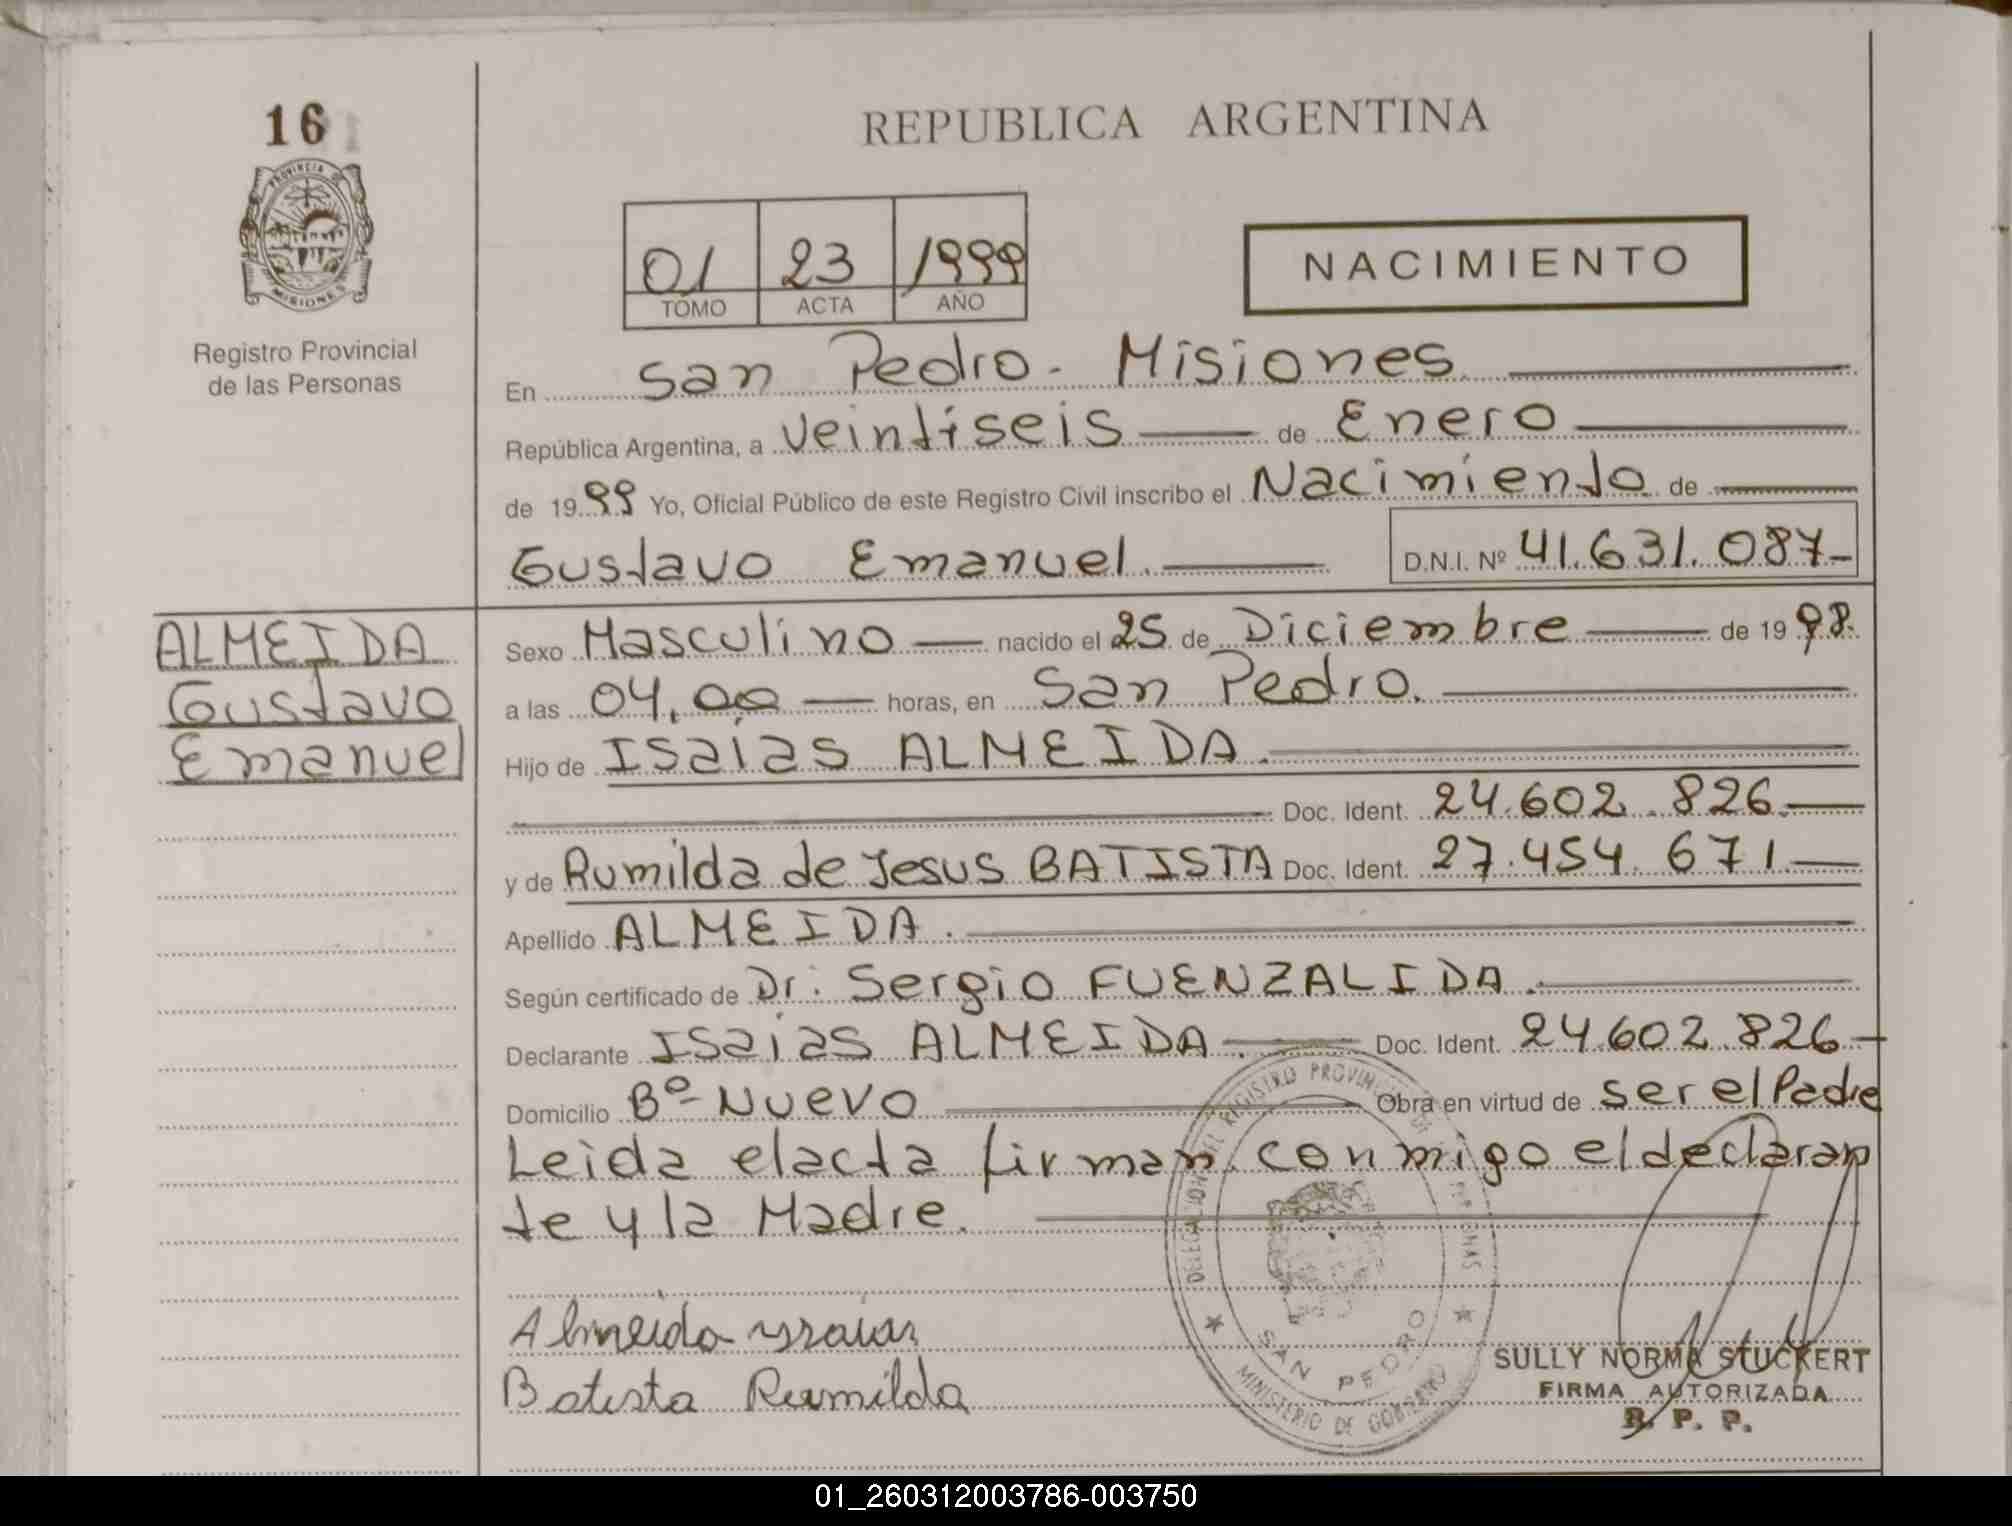 16
PROVINCIA DE
MISIONES
Registro Provincial
de las Personas
REPUBLICA ARGENTINA
01 23 1999
TOMO ACTA AÑO
NACIMIENTO
En San Pedro - Misiones
República Argentina, a veintiseis de Enero
de 1999 Yo, Oficial Público de este Registro Civil inscribo el Nacimiento de
Gustavo Emanuel. D.N.I. Nº 41.631.087-
ALMEIDA
Gustavo
Emanuel
Sexo Masculino nacido el 25 de Diciembre de 1998.
a las 04,00 horas, en San Pedro.
Hijo de Isaias ALMEIDA.
Doc. Ident. 24.602.826.
y de Rumilda de Jesus BATISTA Doc. Ident. 27.454.671.
Apellido ALMEIDA.
Según certificado de Dr: Sergio FUENZALIDA.
Declarante Isaias ALMEIDA. Doc. Ident. 24.602.826-
Domicilio Bº Nuevo Obra en virtud de ser el Padre
Leida el acta firman conmigo el declaran
te y la Madre.
Almeida Ysaias
Batista Rumilda
DELEGACION DEL REGISTRO PROVINCIAL DE LAS PERSONAS
SAN PEDRO
MINISTERIO DE GOBIERNO
SULLY NORMA STUCKERT
FIRMA AUTORIZADA
R. P. P.
01_260312003786-003750